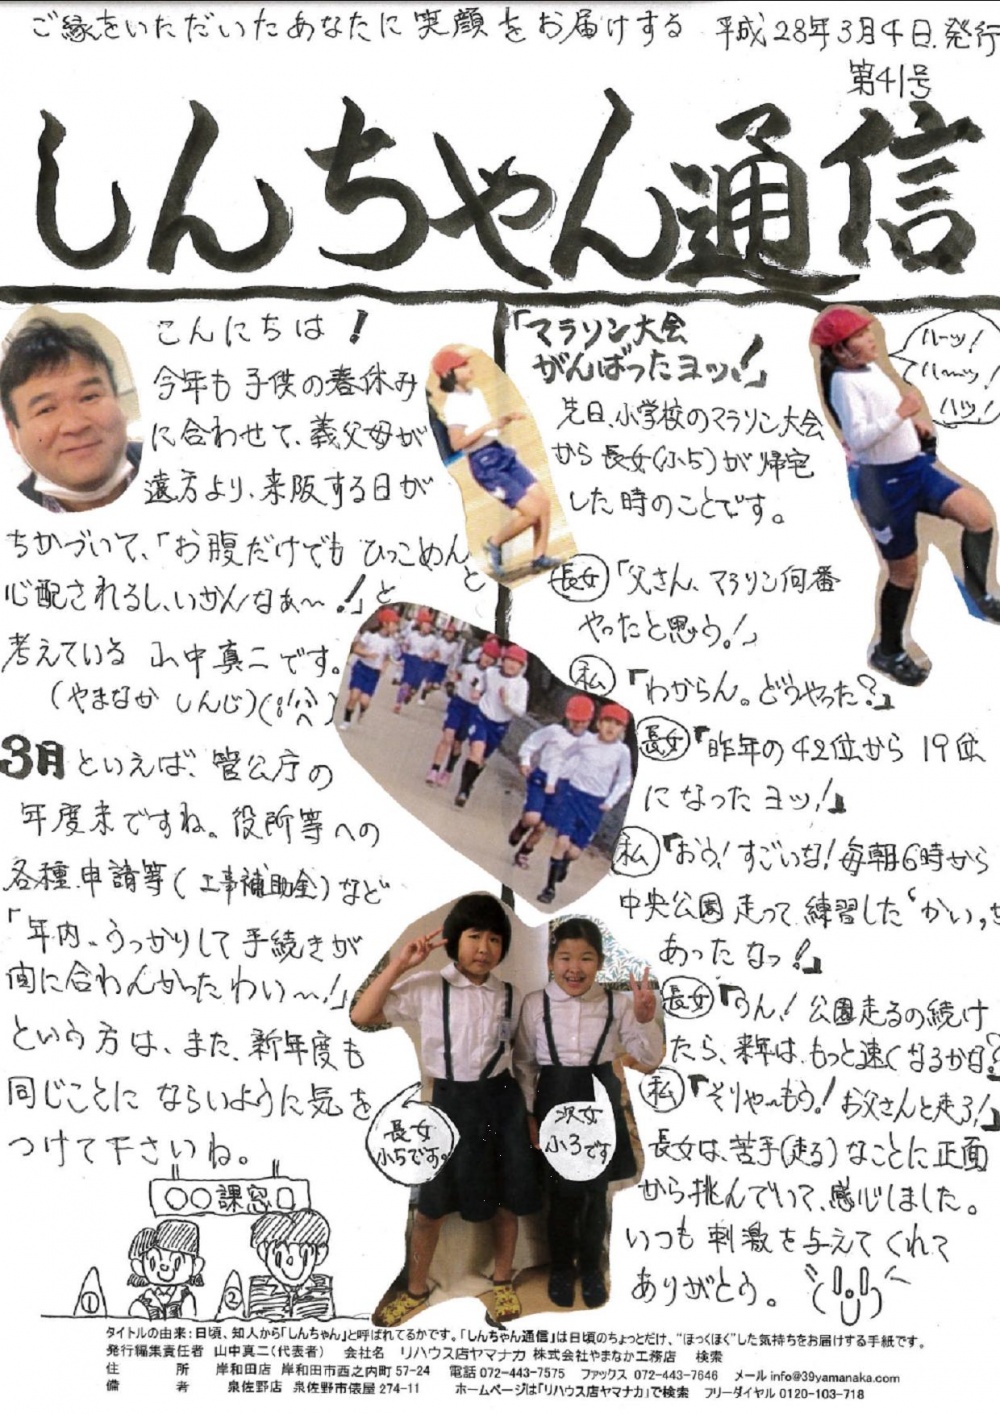 ご縁をいただいたあなたに笑顔をお届けする
平成28年3月4日発行
第41号
しんちゃん通信
こんにちは!
今年も子供の春休み
に合わせて、義父母が
遠方より、来阪する日が
ちかづいて、「お腹だけでもひっこめんと
心配されるし、いかんなぁ〜!」と
考えている山中真二です。
(やまなか しんじ)
3月といえば、管公庁の
年度末ですね。役所等への
各種申請等(工事補助金)など
「年内、うっかりして手続きが
間に合わんかったわい〜!」
という方は、また、新年度も
同じことにならいように気を
つけて下さいね。
〇〇課窓口
①
②
「マラソン大会
がんばったヨッ!」
先日、小学校のマラソン大会
から長女(小5)が帰宅
した時のことです。
長女「父さん、マラソン何番
やったと思う!」
私「わからん。どうやった?」
長女「昨年の42位から19位
になったヨッ!」
私「おう!すごいな!毎朝6時から
中央公園走って練習した“かい”も
あったなっ!」
長女「うん!公園走るの続け
たら、来年は、もっと速くなるかな?」
私「そりゃ〜もう!お父さんと走ろ!」
長女は、苦手(走る)なことに正面
から挑んでいて、感心しました。
いつも刺激を与えてくれて
ありがとう。
ハーッ!
ハーッ!
ハッ!
長女
小5です。
次女
小3です
タイトルの由来:日頃、知人から「しんちゃん」と呼ばれてるかです。「しんちゃん通信」は日頃のちょっとだけ、“ほっくほく”した気持ちをお届けする手紙です。
発行編集責任者 山中真二(代表者) 会社名 リハウス店ヤマナカ 株式会社やまなか工務店 検索
住 所 岸和田店 岸和田市西之内町57-24 電話072-443-7575 ファックス 072-443-7646 メールinfo@39yamanaka.com
備 考 泉佐野店 泉佐野市俵屋274-11 ホームページは「リハウス店ヤマナカ」で検索 フリーダイヤル0120-103-718